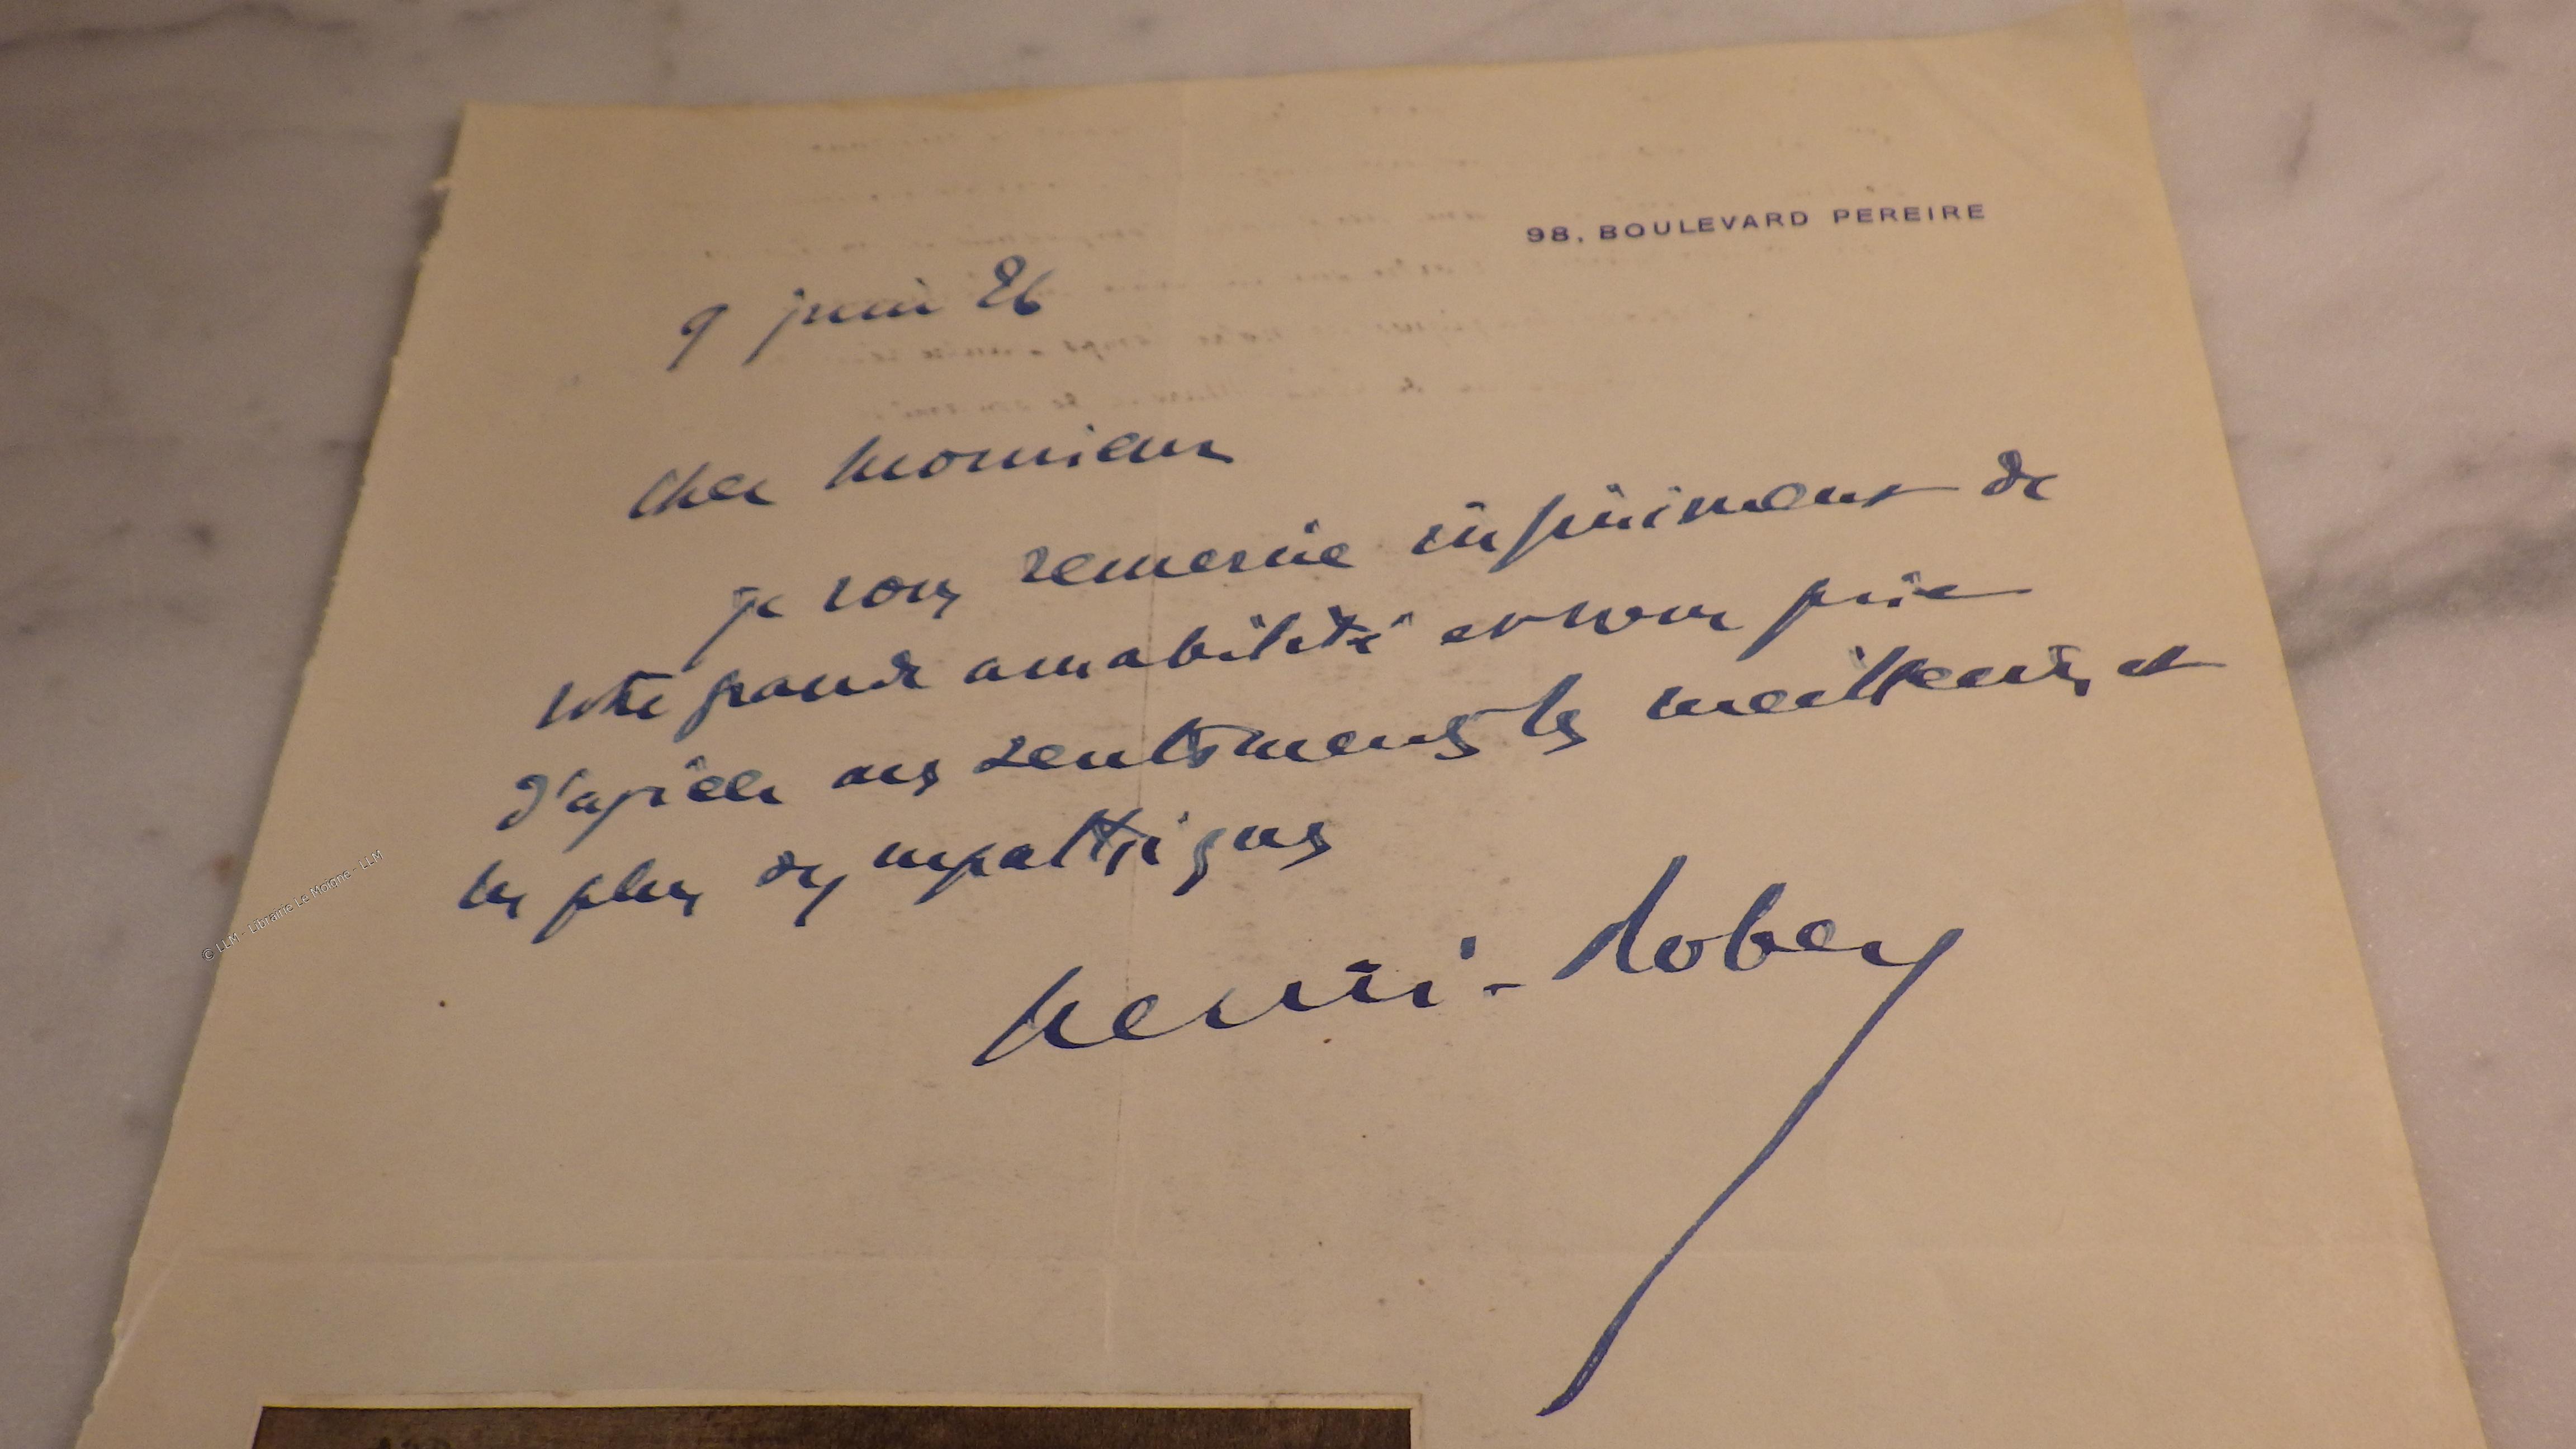 98, BOULEVARD PEREIRE
9 juin 26
Cher Monsieur
je vous remercie infiniment de
votre grande amabilité et vous prie
d'agréer mes sentiments les meilleurs et
les plus sympathiques
Henri-Robert
© LLM - Librairie Le Moigne - LLM